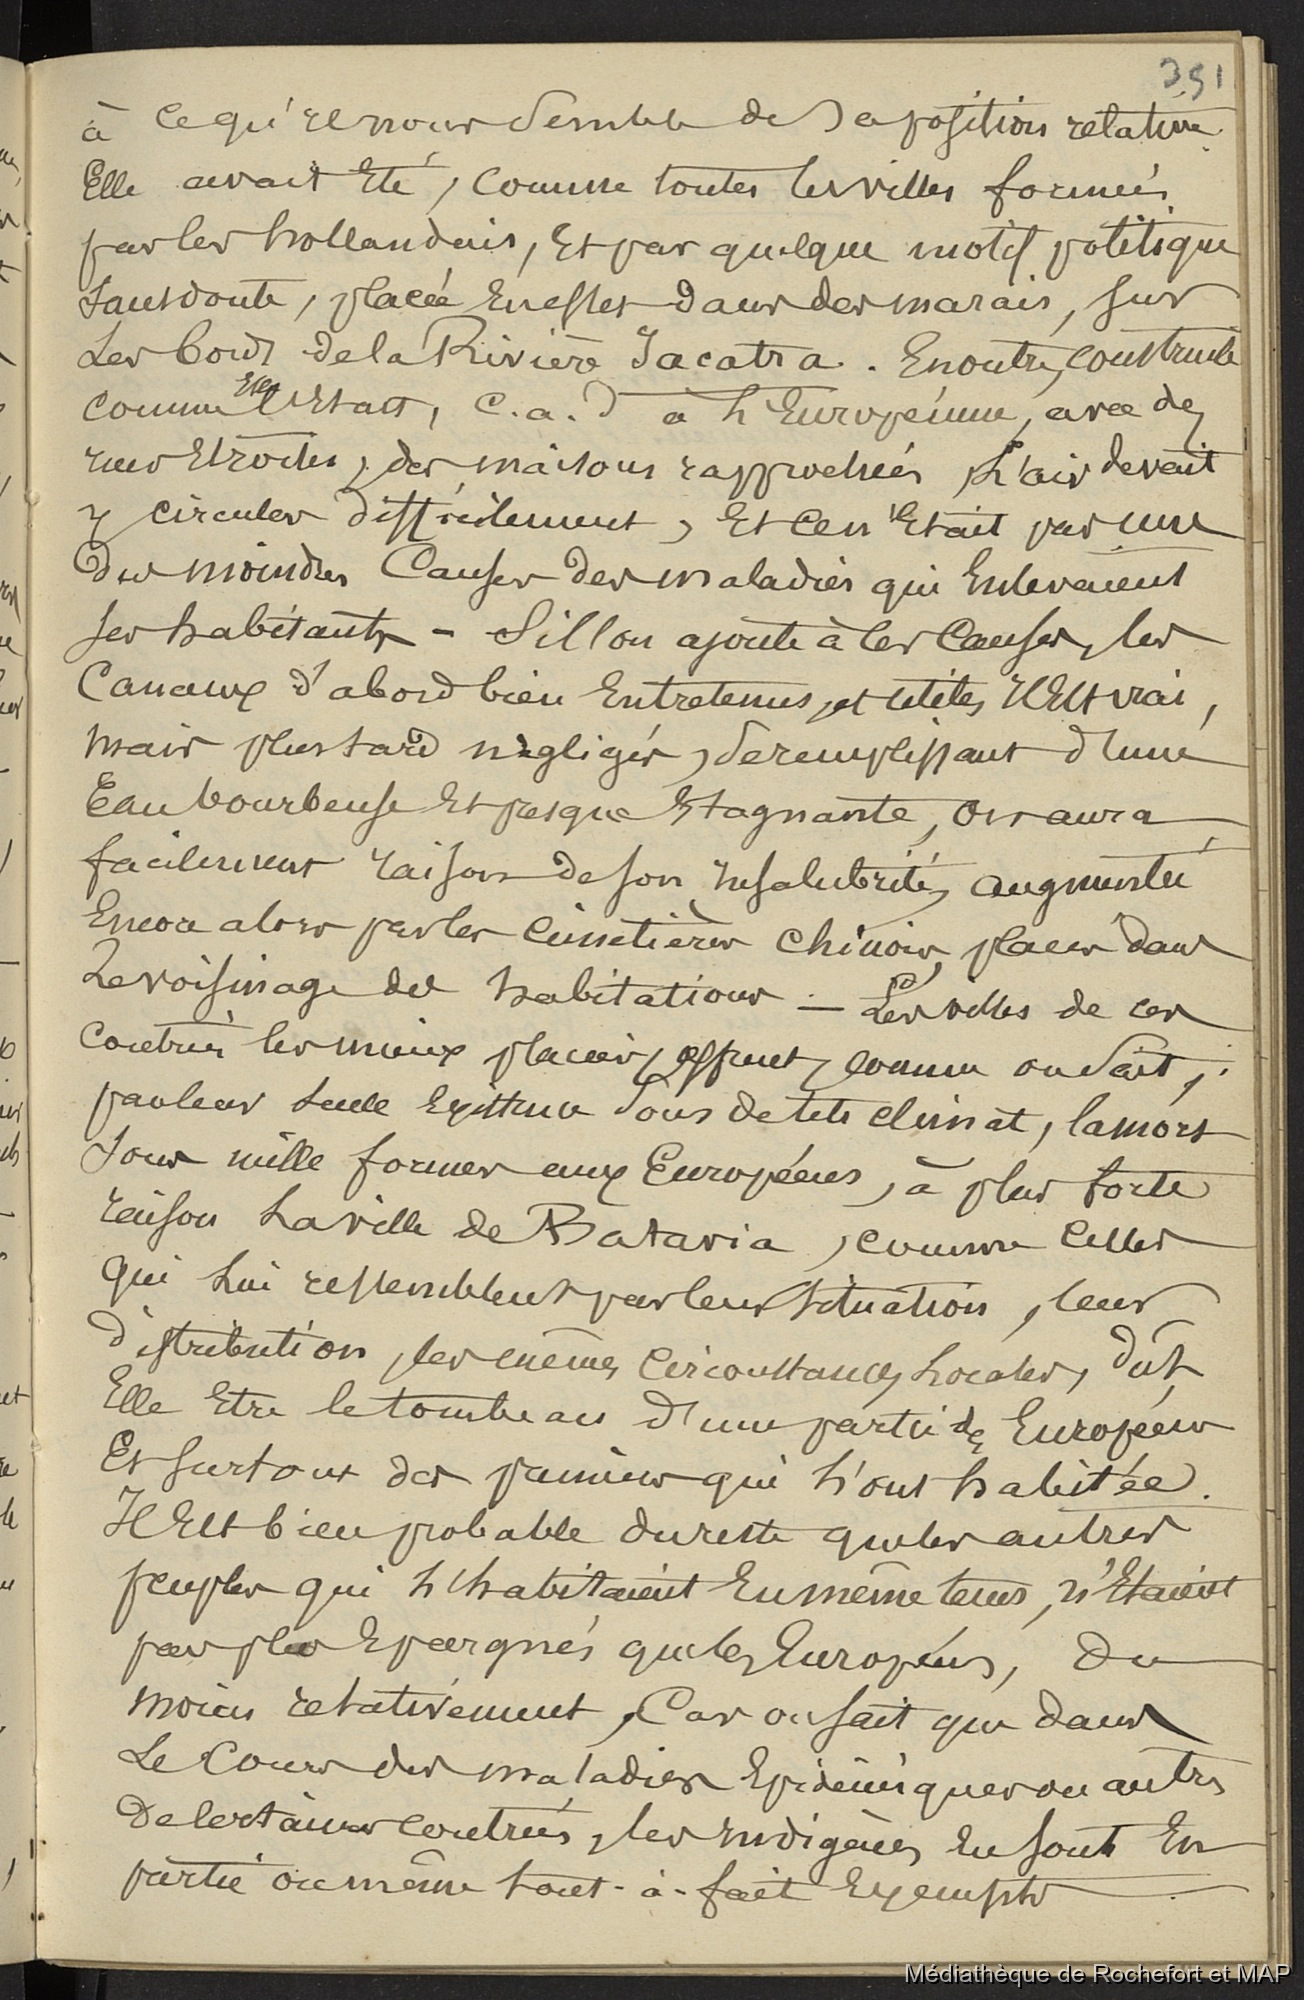 351
à ce qu'il nous semble de sa position relative.
Elle avait Eté, comme toutes les villes formées
par les hollandais, Et par quelque motif politique
sans doute, placée En effet dans des marais, sur
Les bords de la Rivière Jacatra. En outre, construite
comme Elle l'Etait, c.a.d à l'Européenne, avec des
rues Etroites, des maisons rapprochées, L'air devait
y circuler difficilement, Et ce n'Etait pas une
des moindres Causes des maladies qui Enlevaient
ses habitants - Si l'on ajoute à ces Causes, les
Canaux d'abord bien Entretenus, et utiles, Il Est vrai,
mais plus tard négligés, se remplissant d'une
Eau bourbeuse Et presque Stagnante, on aura
facilement raison de son insalubrité, augmentée
Encore alors par les cimetières chinois, placés dans
Le voisinage des habitations. — Les villes de ces
contrées les mieux placées, offrent, comme on sait,
par leur seule Existence sous de tels climat, la mort
sous mille formes aux Européens, à plus forte
raison La ville de Batavia, comme celles
qui Lui ressemblent par leur situation, leur
distribution, les mêmes circonstances Locales, dût
Elle Etre le tombeau d'une partie des Européens
Et surtout des premiers qui l'ont habitée.
Il Est bien probable du reste que les autres
peuples qui l'habitaient En même tems, n'Etaient
pas plus Epargnés que les Européens, Du
moins relativement, Car on sait que dans
Le Cours des maladies Epidémiques ou autres
De certaines contrées, les indigènes En sont En
partie ou même tout-à-fait Exempts
Médiathèque de Rochefort et MAP